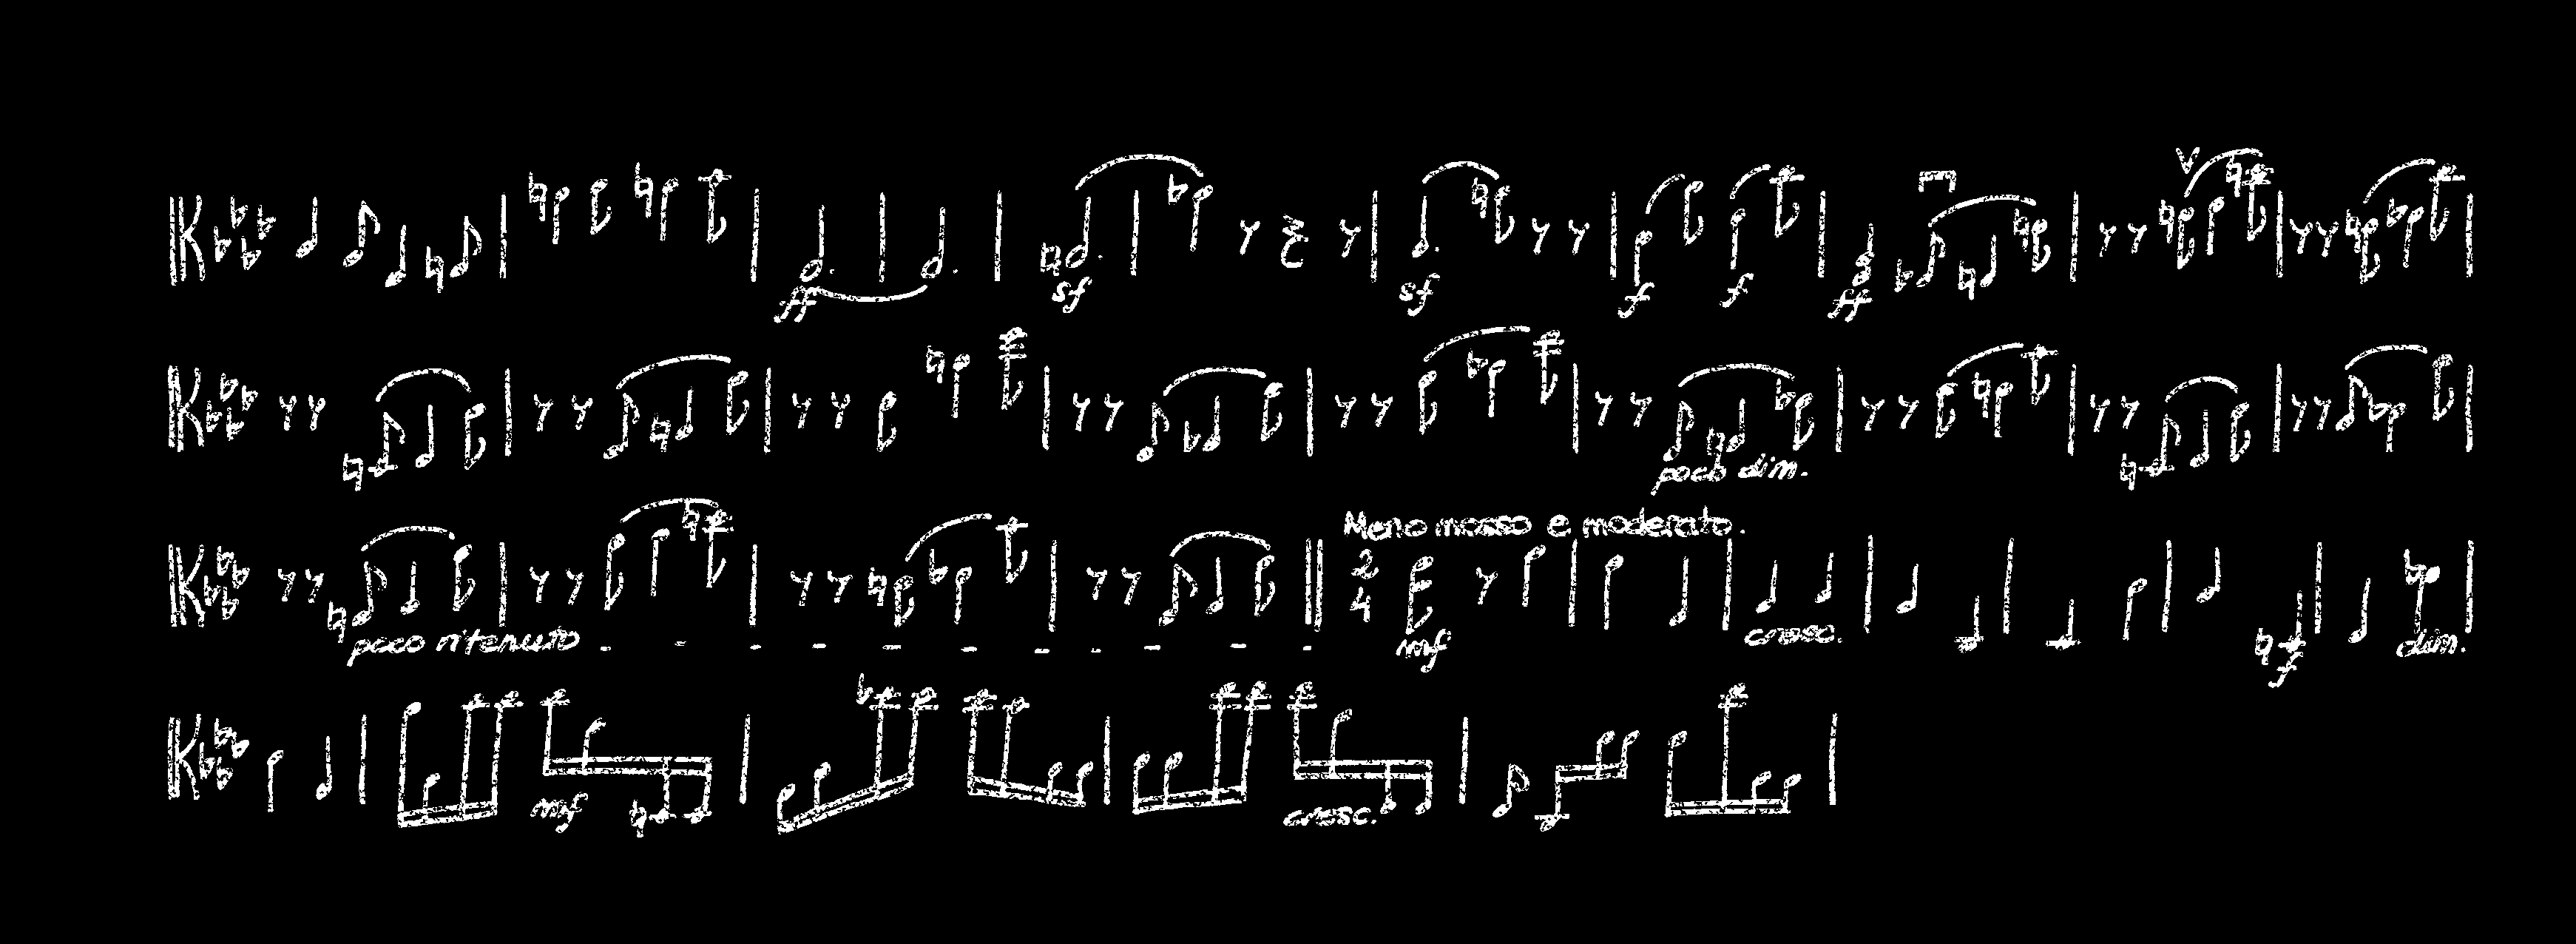 ff sf sf f f ff
poco dim.
Meno mosso e moderato.
2
4
poco ritenuto - - - - - - - - - - - mf cresc. f dim.
mf cresc.